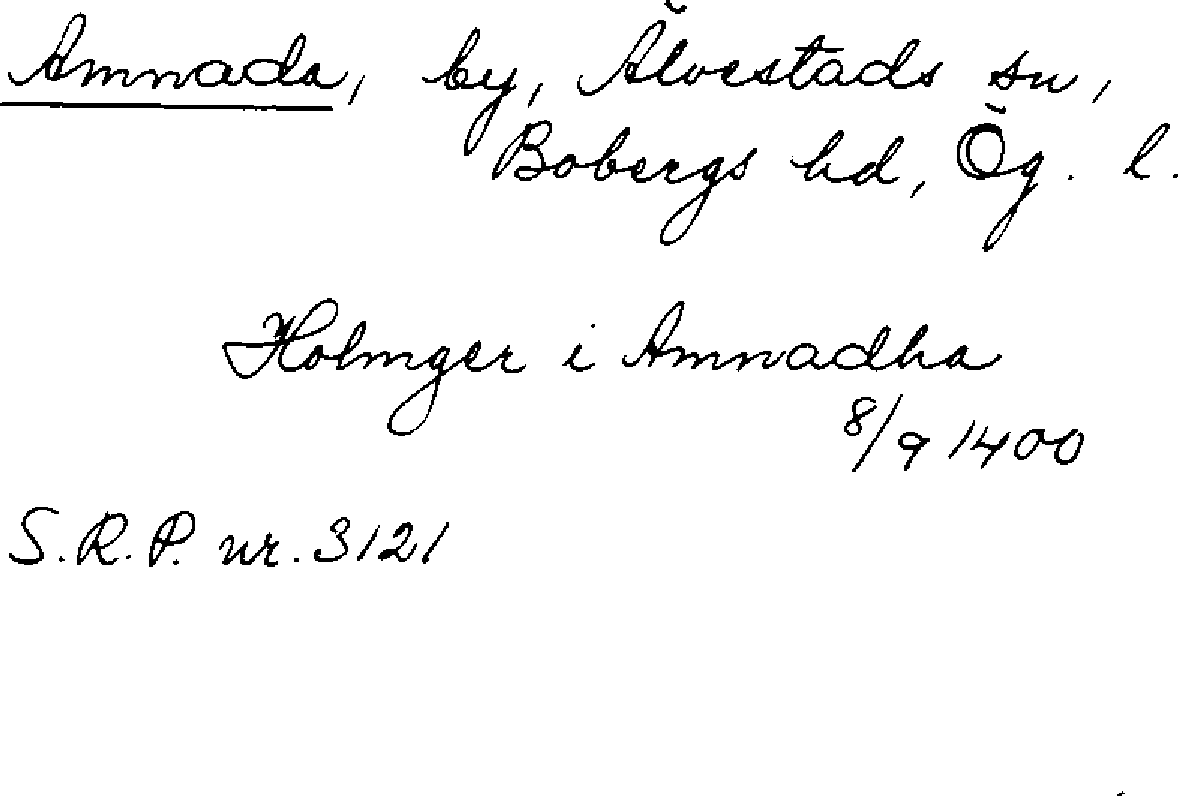 Amnada, by, Älvestads sn,
Bobergs hd, Ög. l.
Holmger i Amnadha
8/9 1400
S.R.P. nr. 3121